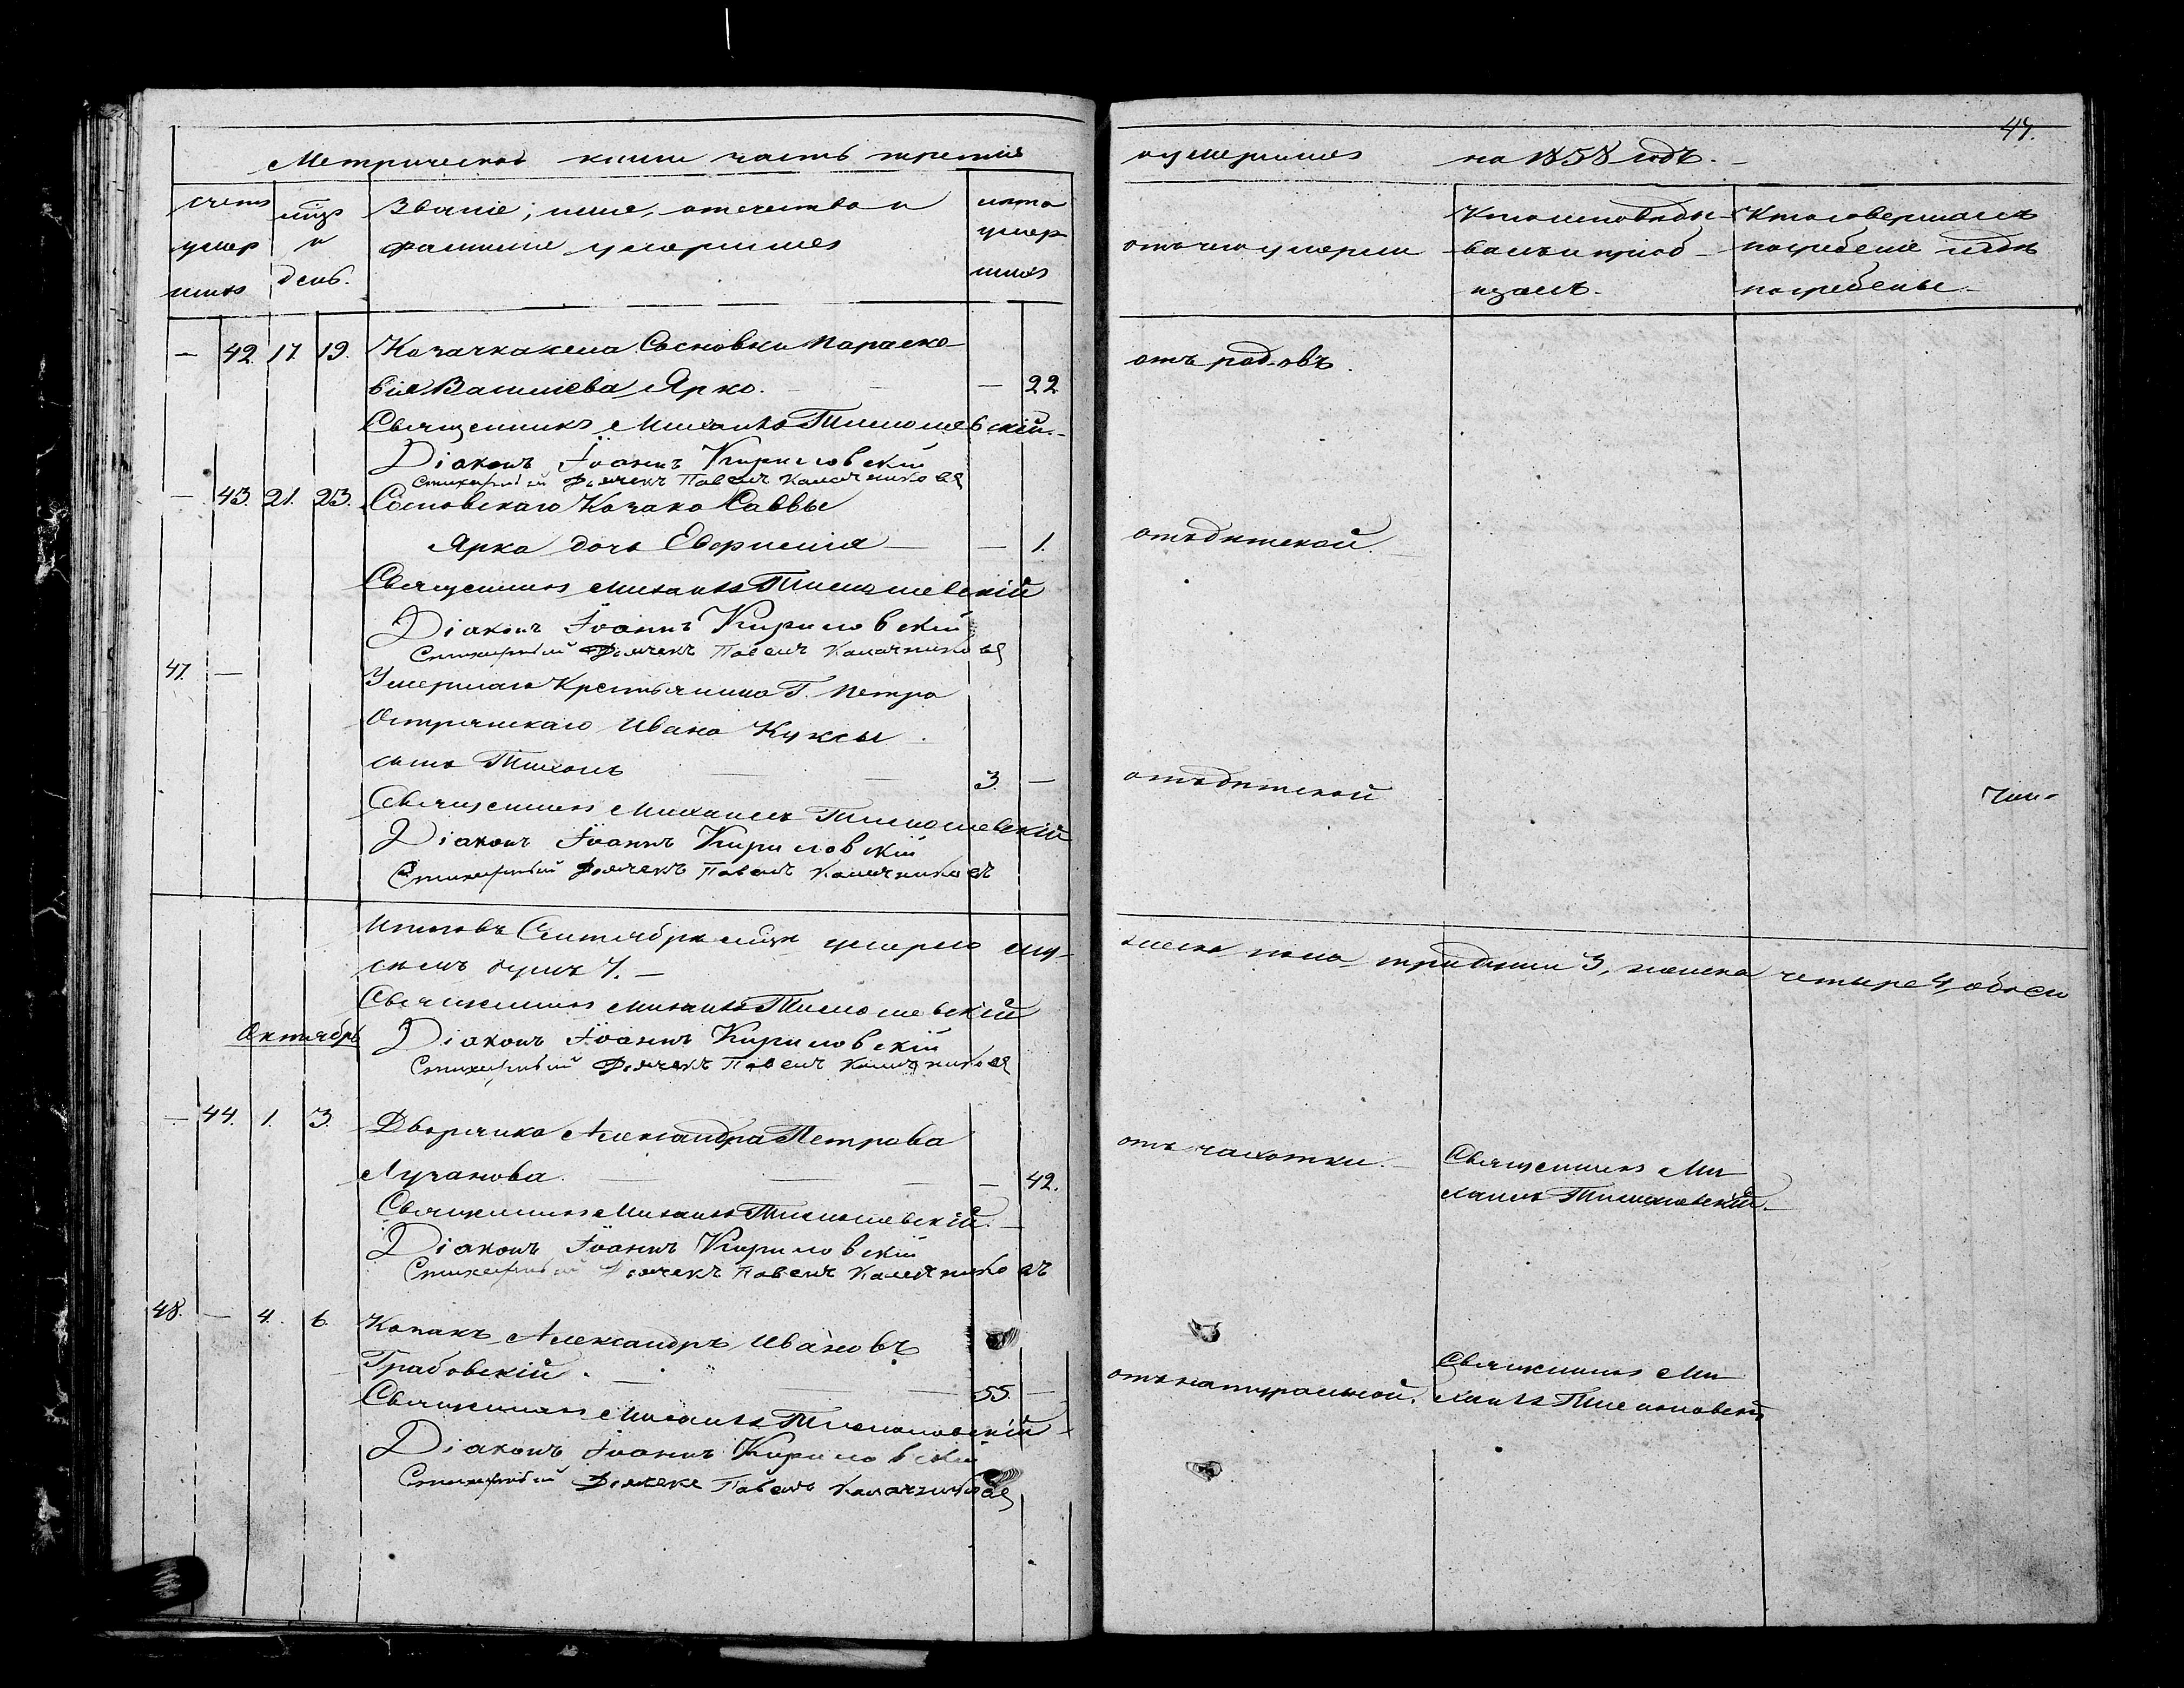 47.
Метрической книги часть третія
о умершихъ на 1858 годъ.
счетъ умершихъ
мцъ и день.
Званіе, имя, отечество и фамилія умершихъ
лета умершихъ
отъ чего умерли
Кто исповедывалъ и пріобщалъ.
Кто совершалъ погребеніе и где погребены.
— 42. 17 19. Козачка села Сосновки Параске-
вія Васильева Ярко. — 22
отъ родовъ.
Священникъ Михаилъ Тимошевскій.
Діаконъ Іоаннъ Кириловскій
Стихарный Дьячекъ Павелъ Калачниковъ
— 43. 21. 23. Сосновскаго Козака Саввы
Ярка дочь Евфимія — — 1.
отъ детской.
Священникъ Михаилъ Тимошевскій
Діаконъ Іоаннъ Кириловскій
Стихарный Дьячекъ Павелъ Калачниковъ
47. — Умершаго Крестьянина Г. Петра
Остранскаго Ивана Куксы
сынъ Тихонъ — — 3. —
отъ детской
Священникъ Михаилъ Тимошевскій
Діаконъ Іоаннъ Кириловскій
Стихарный Дьячекъ Павелъ Калачниковъ
Итого въ Сентябре мцее умерло муж-
еска пола три души 3, женска четыре 4, обоего
семь душъ 7. —
Священникъ Михаилъ Тимошевскій
Октябрь
Діаконъ Іоаннъ Кириловскій
Стихарный Дьячекъ Павелъ Калачниковъ
— 44. 1. 3. Дворянка Александра Петрова
Лучанова. — — — 42.
отъ чахотки.
Священникъ Ми-
хаилъ Тимошевскій.
Священникъ Михаилъ Тимошевскій.
Діаконъ Іоаннъ Кириловскій
Стихарный Дьячекъ Павелъ Калачниковъ
48. — 4. 6. Козакъ Александръ Ивановъ
Грабовскій. — — 55. —
отъ натуральной.
Священникъ Ми-
хаилъ Тимошевскій
Священникъ Михаилъ Тимошевскій
Діаконъ Іоаннъ Кириловскій
Стихарный Дьячекъ Павелъ Калачниковъ